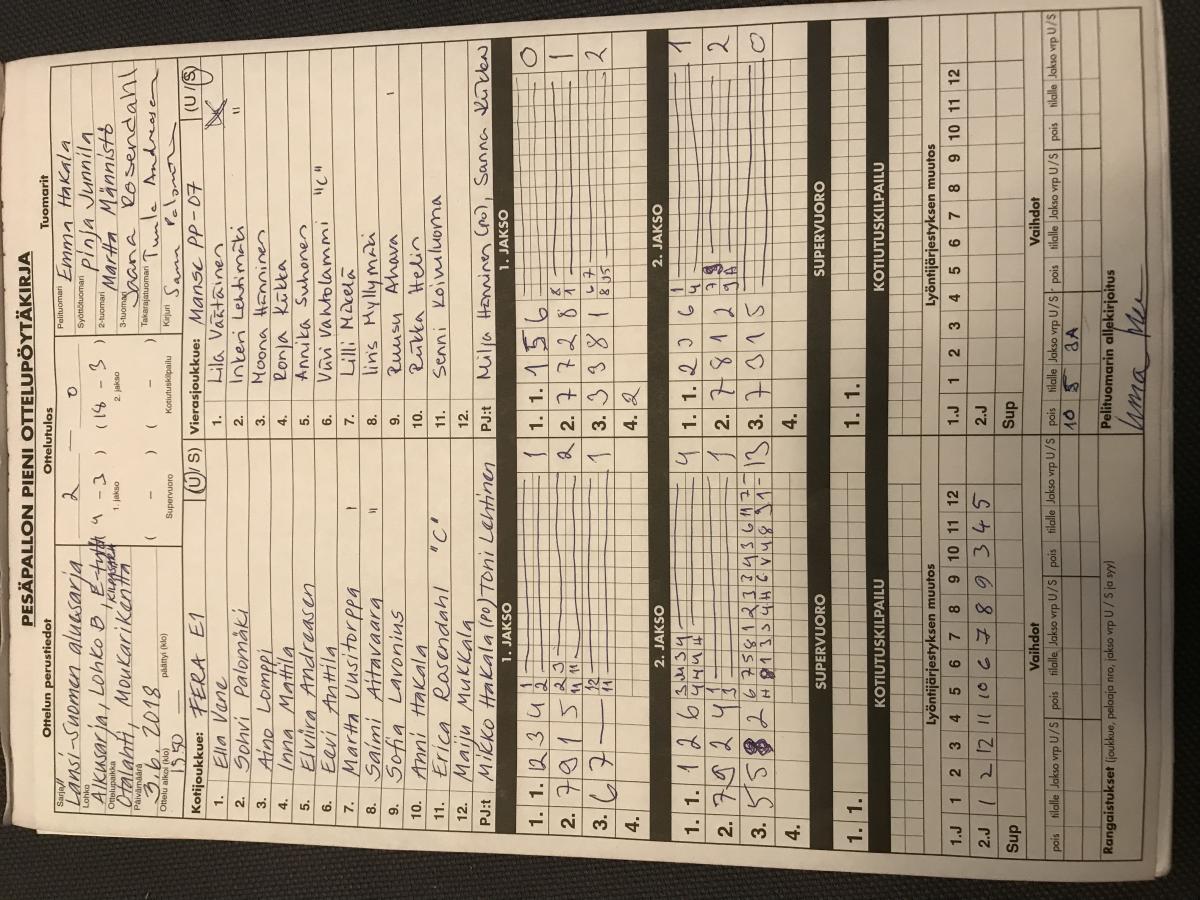 PESÄPALLON PIENI OTTELUPÖYTÄKIRJA
Ottelun perustiedot
Sarja
Länsi-Suomen aluesarja
Lohko
Alkusarja, Lohko B,
Ottelupaikka
Otalahti, Moukarikenttä
Päivämäärä
3.6.2018
Ottelu alkoi (klo)
päättyi (klo)
Ottelutulos
2 – 0
(4 – 3) (18 – 3)
1. jakso 2. jakso
( – ) ( – )
Supervuoro Kotiutuskilpailu
Tuomarit
Pelituomari Emma Hakala
Syöttötuomari Pinja Junnila
2-tuomari Martta Männistö
3-tuomari Jaana Rosendahl
Takarajatuomari Tuula Andreasen
Kirjuri Sanna Palomäki
Kotijoukkue: FERA E1 (U/S)
1. Ella Vane
2. Sohvi Palomäki
3. Aino Lomppi
4. Inna Mattila
5. Elviira Andreasen
6. Eevi Anttila
7. Martta Uusitorppa I
8. Saimi Aitavaara II
9. Sofia Lavonius
10. Anni Hakala
11. Erica Rosendahl "C"
12. Maiju Mukkala
PJ:t Mikko Hakala (PO) Toni Lehtinen
Vierasjoukkue: Manse PP-07 (U/S)
1. Lila Väätäinen
2. Inkeri Lehtimäki II
3. Moona Hänninen
4. Ronja Kukka
5. Annika Suhonen
6. Viivi Vahtolammi "C"
7. Lilli Mäkelä
8. Iiris Myllymäki
9. Ruusu Ahava I
10. Riikka Helin
11. Senni Koivuluoma
12.
PJ:t Milja Hänninen (PO), Sanna Kukka
1. JAKSO
1. 1. 1 2 3 4 1 2 1
2. 7 9 1 5 2 3 11 11 2
3. 6 7 12 11 1
4.
1. JAKSO
1. 1. 1 5 6 0
2. 7 7 2 8 8 1 1
3. 3 3 8 1 6 7 8 5 2
4. 2
2. JAKSO
1. 1. 1 2 6 3 2 3 4 4 4 4 4
2. 7 9 2 4 1 3 1
3. 5 5 2 13
4.
2. JAKSO
1. 1. 2 3 6 1 4 1
2. 7 8 1 2 2
3. 7 3 1 5 0
4.
SUPERVUORO
1. 1.
SUPERVUORO
1. 1.
KOTIUTUSKILPAILU
KOTIUTUSKILPAILU
Lyöntijärjestyksen muutos
1.J 1 2 3 4 5 6 7 8 9 10 11 12
2.J 1 2 12 11 10 6 7 8 9 3 4 5
Sup
Lyöntijärjestyksen muutos
1.J 1 2 3 4 5 6 7 8 9 10 11 12
2.J
Sup
Vaihdot
pois tilalle Jakso vrp U/S pois tilalle Jakso vrp U/S pois tilalle Jakso vrp U/S
Vaihdot
pois tilalle Jakso vrp U/S pois tilalle Jakso vrp U/S pois tilalle Jakso vrp U/S
10 5 2A
Rangaistukset (joukkue, pelaaja nro, jakso vrp U / S ja syy)
Pelituomarin allekirjoitus